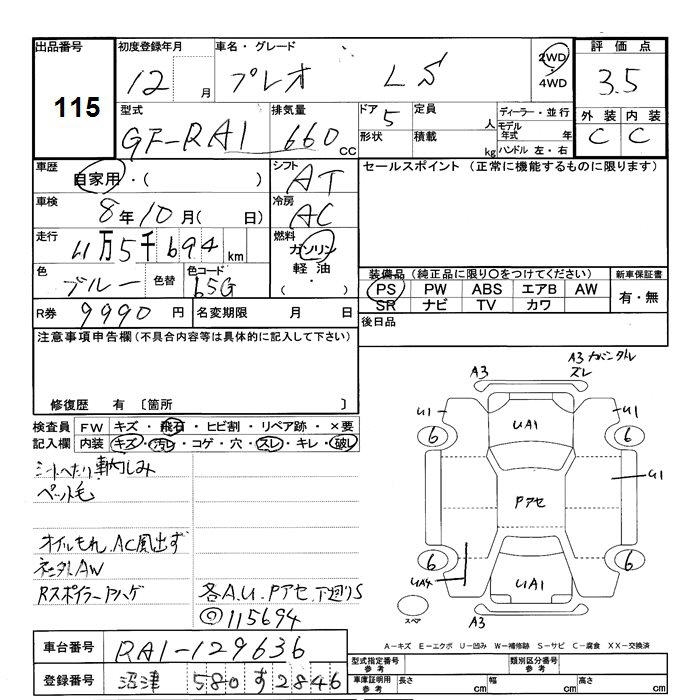 出品番号 115
初度登録年月 12 月
車名・グレード プレオ LS
2WD
4WD
評価点 3.5
外装 C
内装 C
型式 GF-RA1
排気量 660 cc
ドア 5
形状
定員 人
積載 kg
ディーラー・並行
モデル年式 年
ハンドル 左・右
車歴 自家用・( )
シフト AT
車検 8年10月( 日)
冷房 AC
走行 11万5千694km
燃料 ガソリン
軽油
( ・ )
色 ブルー
色替
色コード 65G
R券 9990円
名変期限 月 日
セールスポイント (正常に機能するものに限ります)
装備品 (純正品に限り〇をつけてください)
PS PW ABS エアB AW
SR ナビ TV カワ
新車保証書
有・無
後日品
注意事項申告欄(不具合内容等は具体的に記入して下さい)
修復歴 有 〔箇所 〕
検査員記入欄
FW キズ・飛石・ヒビ割・リペア跡・×要
内装 キズ・汚レ・コゲ・穴・スレ・キレ・破レ
シートへたり 車内しみ
ペット毛
オイルもれ、AC風出ず
ネジ外AW
Rスポイラーアハゲ
各A.U.Pアセ、下廻りS
◎115694
A3
A3 ナバンタレ
ズレ
U1
U1
6
6
UA1
U1
Pアセ
6
6
UA4
UA1
A3
スペア
A-キズ E-エクボ U-凹み W-補修跡 S-サビ C-腐食 XX-交換済
車台番号 RA1-129636
登録番号 沼津 580 す 2846
型式指定番号 参考
類別区分番号 参考
車庫証明用 参考
長さ cm
幅 cm
高さ cm